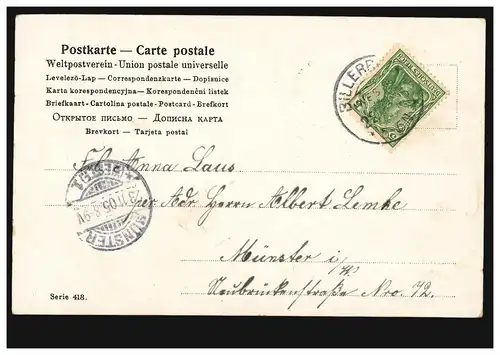 Postkarte — Carte postale
Weltpostverein - Union postale universelle
Levelező-Lap — Correspondenzkarte — Dopisnice
Karta korespondencyjna — Korespondenční listek
Briefkaart - Cartolina postale - Postcard - Brefkort
Открытое письмо — Дописна карта
Brevkort — Tarjeta postal
BILLERB
Frl. Anna Laus
per Adr Herrn Albert Lemke
MÜNSTER
Münster i/W.
Neubrückenstraße Nro. 72.
Serie 418.